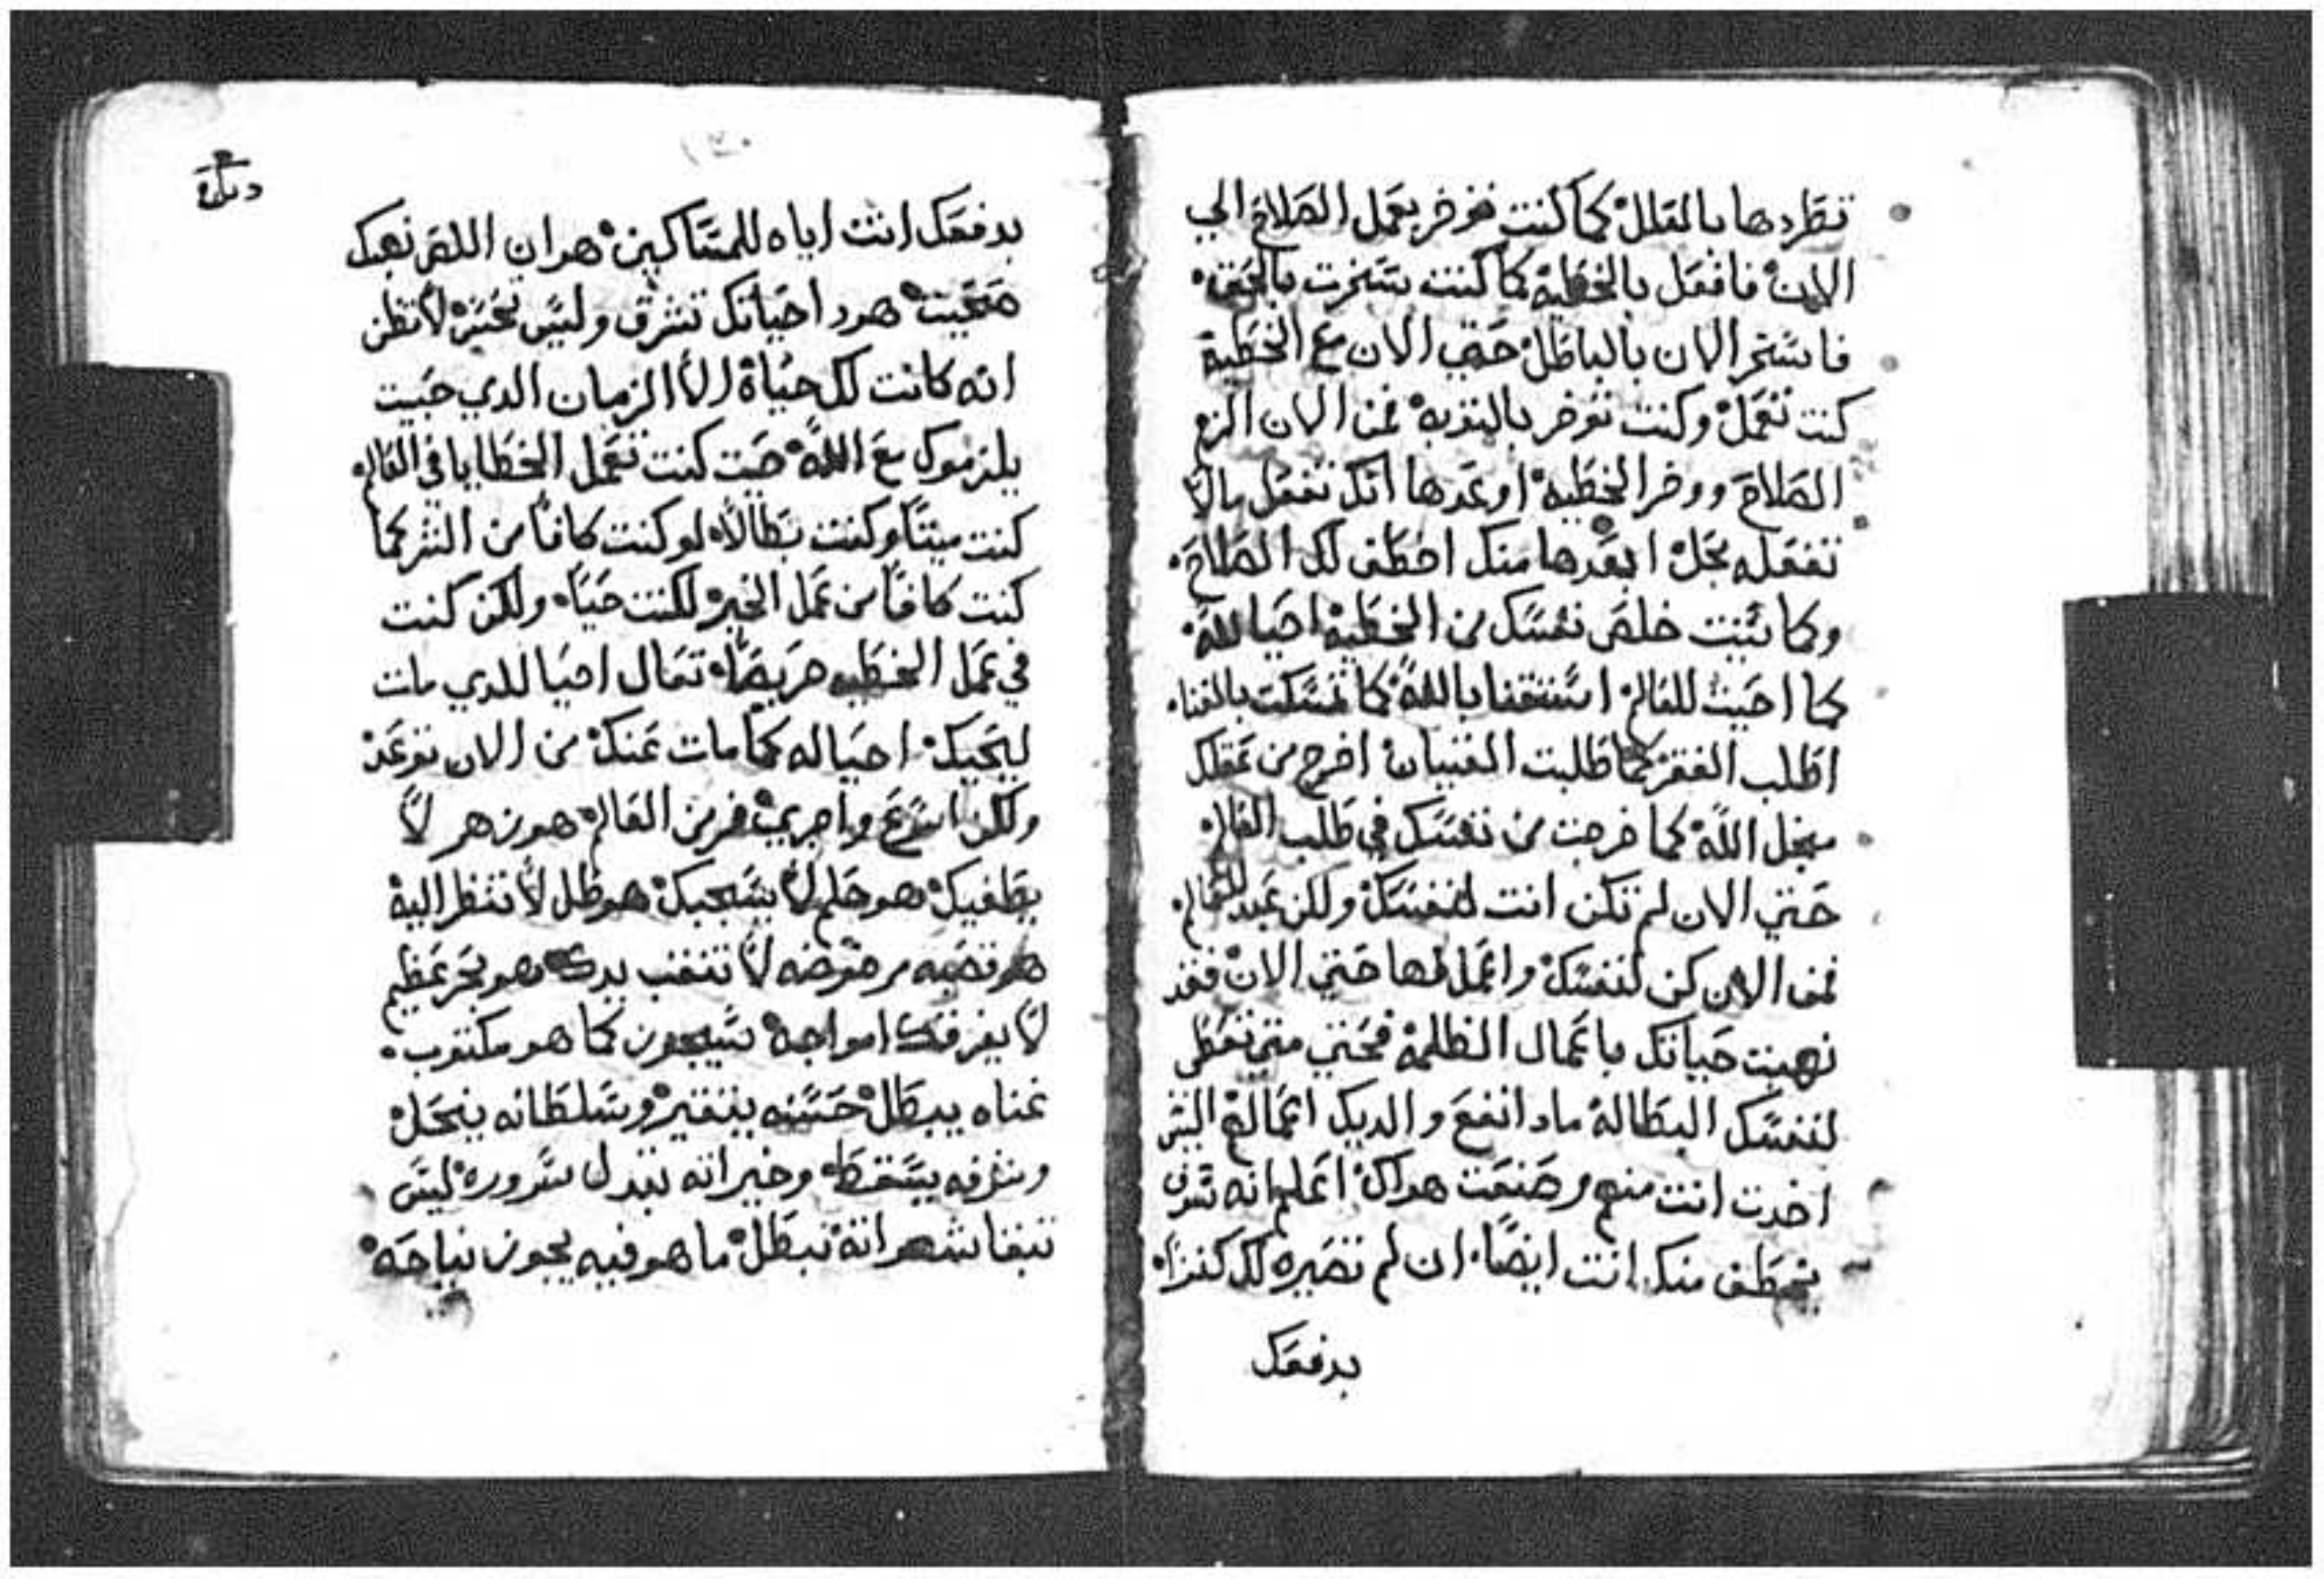 تطردها بالعلل كما كنت توخر بعمل الصلاح الي
الان فافعل بالخطية كما كنت تسخرت بالحق
فاسخر الان بالباطل حتي الان مع الخطية
كنت تعمل وكنت توخر بالتوبه فمن الان الزم
الصلاح ووخر الخطيه اوعدها انك تفعل مالا
تفعله بجل ابعدها منك اخطف لك الصلاح
وكما شيت خلص نفسك من الخطيه احيا لله
كما احيت للعالم استغنا بالله كما تمسكت بالغنا
اطلب الفقر كما طلبت الغنيان اخرج من عقلك
مجل الله كما خرجت من نفسك في طلب العالم
حتي الان لم تكن انت لنفسك ولكن عبد للعالم
فمن الان كن لنفسك واعمل لها حتي الان فقد
نهبت حياتك باعمال الظلمة فحتي متي تعطي
لنفسك البطالة مادا نفع والديك اعمالهم الشر
اخدت انت منهم وصنعت هداك اعلم انه سوف
يخطف منك انت ايضا ان لم تصيره لك كنزا
بدفعك
دىاره
بدفعك انت اياه للمساكين هودان اللص نهبك
صحيت هودا حياتك تشرق وليس تحس لا تظن
انه كانت لك حياة الا الزمان الدي حييت
يلزموك مع الله حيت كنت تعمل الخطايا في العالم
كنت ميتا وكنت بطالا لو كنت كافا من الشر كما
كنت كافا من عمل الخير لكنت حيا ولكن كنت
في عمل الخطيه حريصا تعال احيا للدي مات
ليحيك احيا له كما مات عنك من الان توعد
ولكن اسرع واجري فر من العالم هو زهر لا
يطغيك هو حلم لا يسجبك هو ظل لا تنظر اليه
هو قصبه مرضوضه لا تتقب يدك هو بحر عظيم
لا يغرقك امواجه تسيجون كما هو مكتوب
غناه يبطل حسنه يتغير وسلطانه ينحل
وشرفه يسقط وخيراته تبدل سروره ليس
تبقا شهواته تبطل ما هو فيه يجوز نياحه